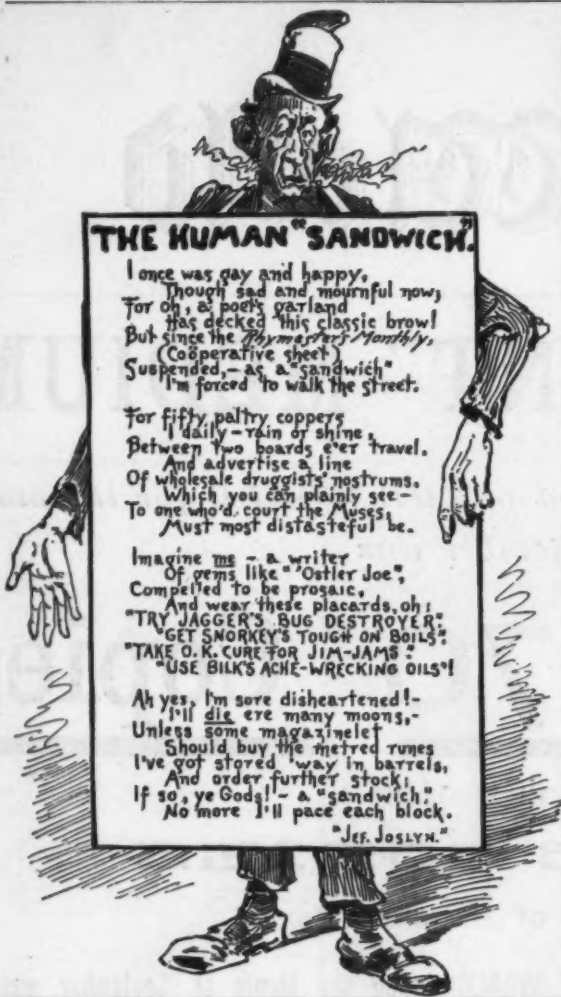 THE HUMAN "SANDWICH".
I once was gay and happy,
Though sad and mournful now;
For oh, a poet's garland
Has decked this classic brow!
But since the Rhymester's Monthly,
(Coöperative sheet)
Suspended,- as a "sandwich"
I'm forced to walk the street.
For fifty paltry coppers
I daily - rain or shine,
Between two boards e'er travel.
And advertise a line
Of wholesale druggists' nostrums,
Which you can plainly see -
To one who'd court the Muses,
Must most distasteful be.
Imagine me - a writer
Of gems like "'Ostler Joe",
Compelled to be prosaic,
And wear these placards, oh:
"TRY JAGGER'S BUG DESTROYER".
"GET SNORKEY'S TOUGH ON BOILS".
"TAKE O.K. CURE FOR JIM-JAMS".
"USE BILK'S ACHE-WRECKING OILS"!
Ah yes, I'm sore disheartened!-
I'll die ere many moons,-
Unless some magazinelet
Should buy the metred runes
I've got stored 'way in barrels,
And order further stock;
If so, ye Gods! - a "sandwich".
No more I'll pace each block.
"JEF. JOSLYN."